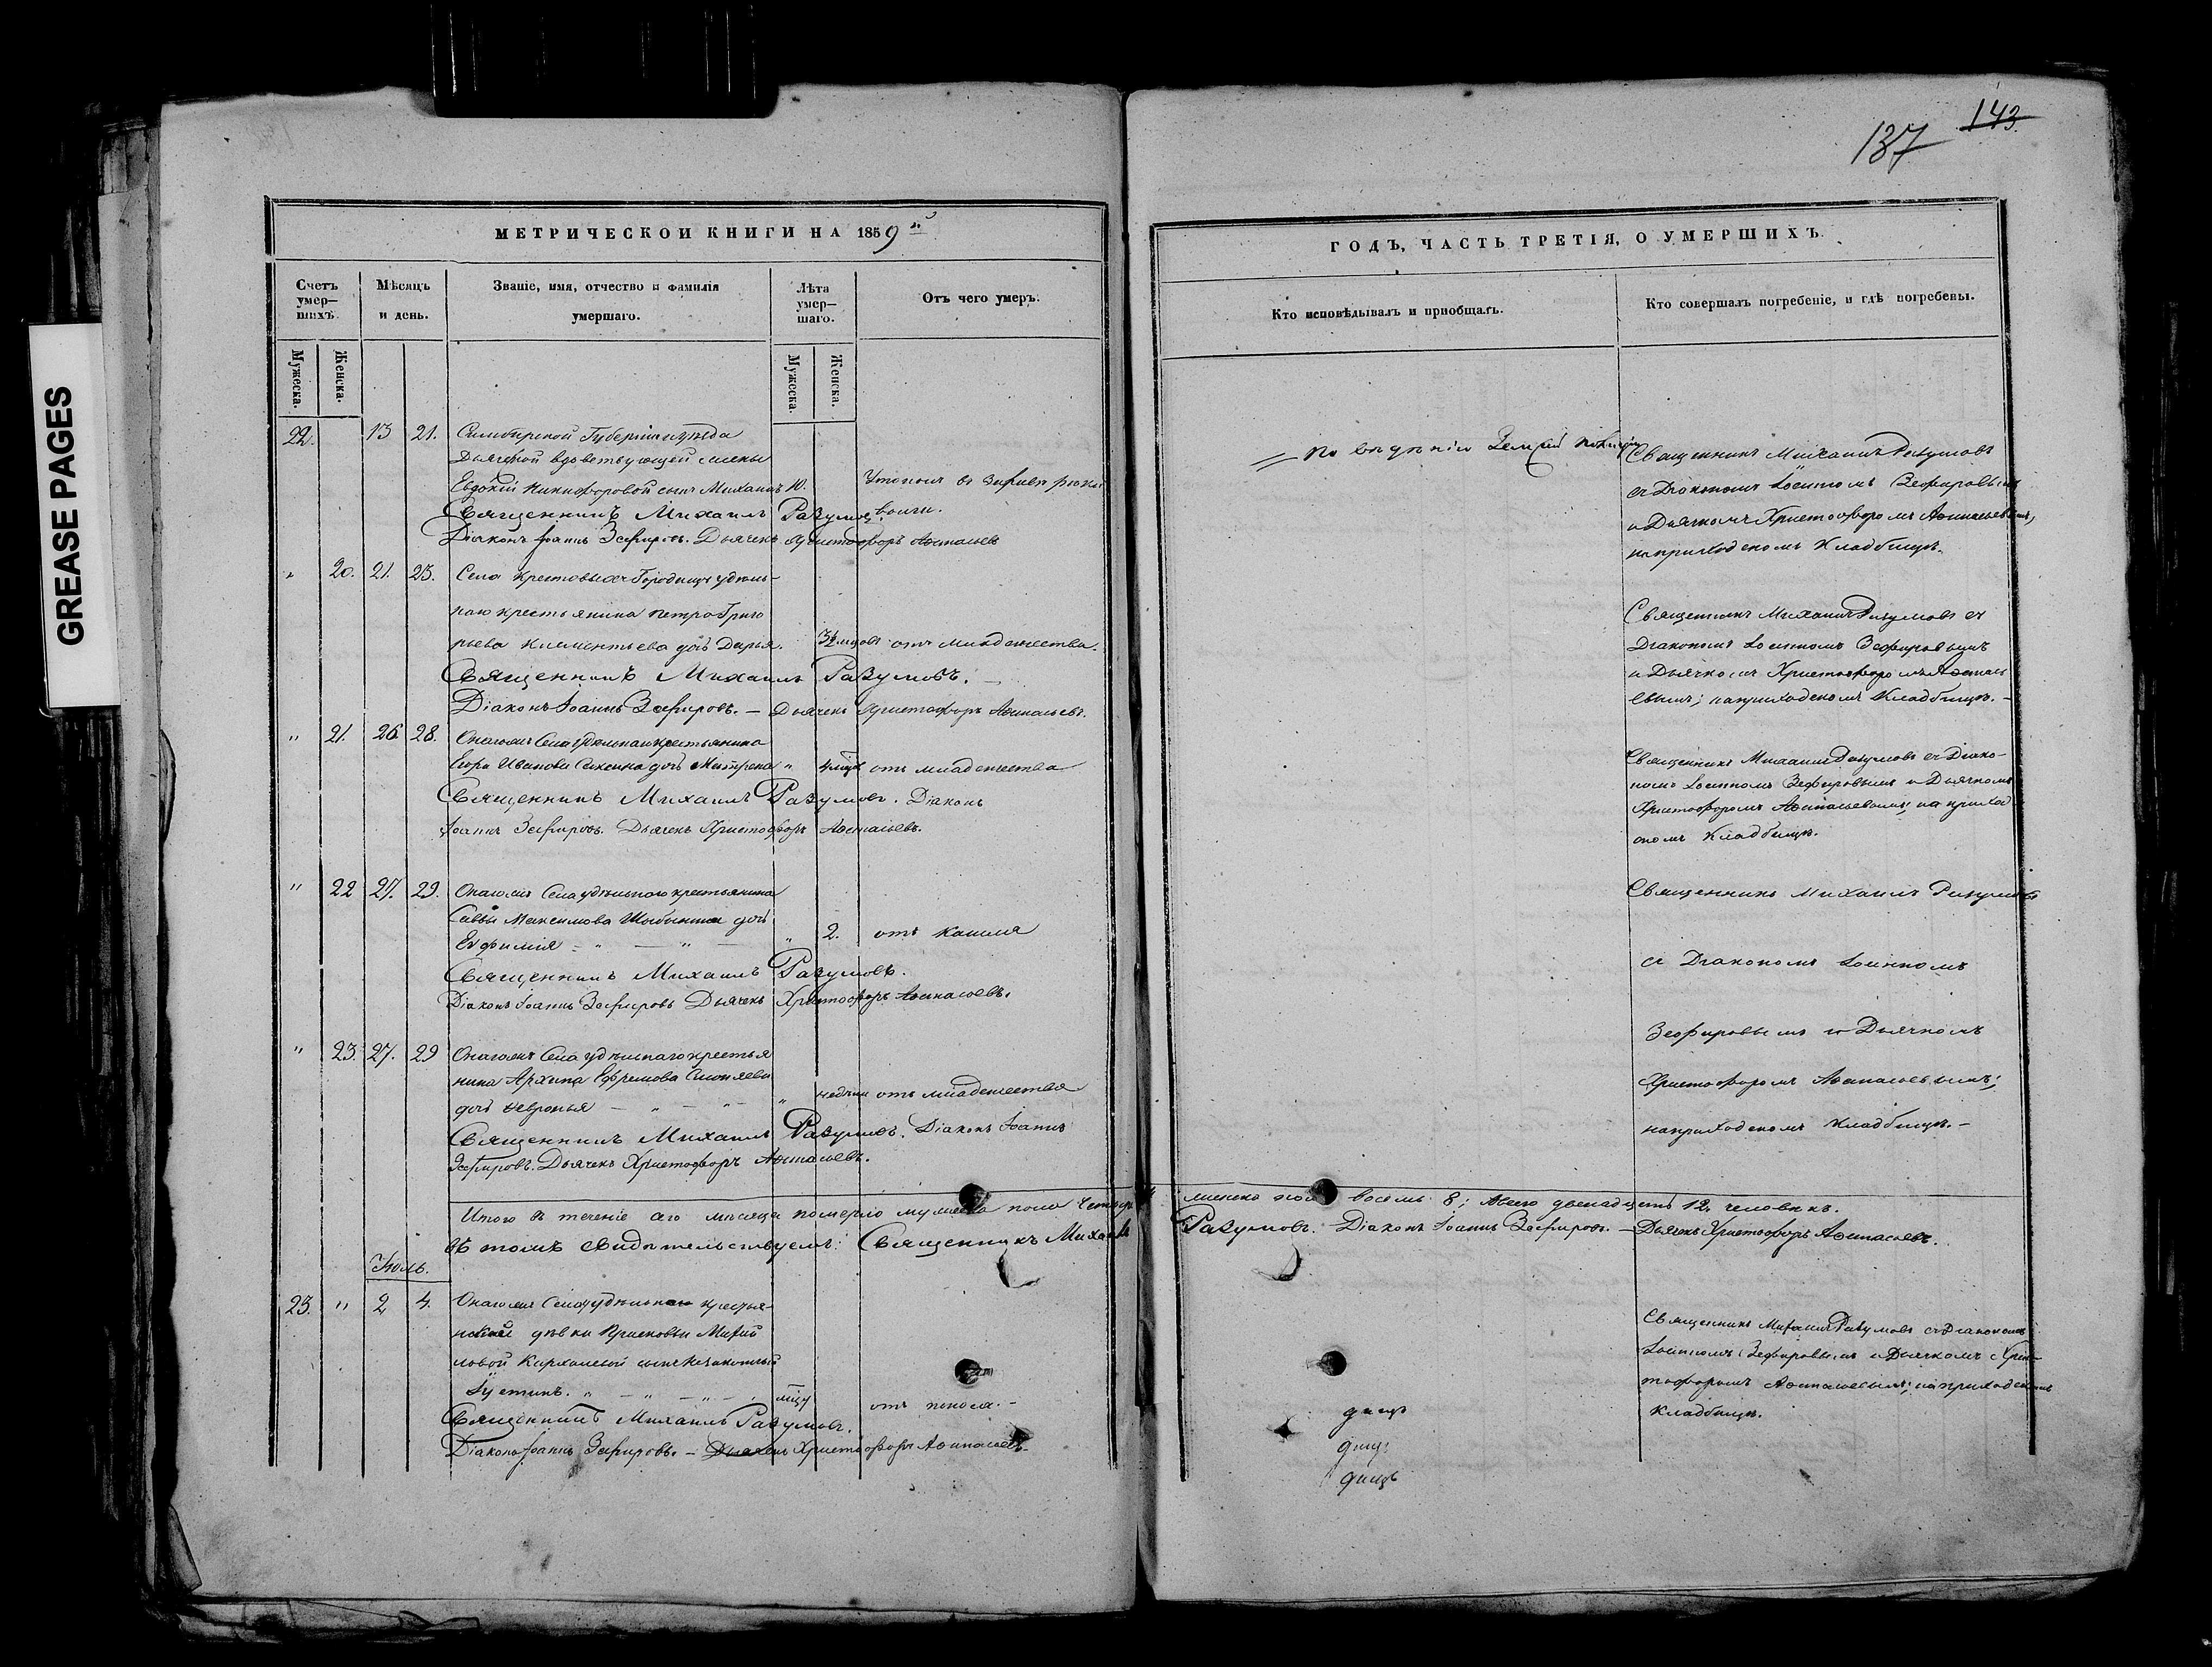 143
137
GREASE PAGES
МЕТРИЧЕСКОЙ КНИГИ НА 1859 й
Счетъ умер—шихъ.
Мѣсяцъ и день.
Званіе, имя, отчество и фамилія умершаго.
Лѣта умер—шаго.
Отъ чего умеръ.
Мужеска.
Женска.
Мужеска.
Женска.
22. 13 21. Симбирской Губерніи
вдовствующей
Евдокіи Никифоровой сынъ Михаилъ 10. Утонулъ въ
Священникъ Михаилъ Разумовъ Волги.
Діаконъ Іоаннъ Зефировъ. Дьячекъ Христофоръ Аѳанасьевъ
" 20. 21. 23. Села Крестовыхъ Городищъ удѣль-
наго крестьянина Петра Григо
рьева Климентьева дочь Дарья. отъ младенчества.
Священникъ Михаилъ Разумовъ.
Діаконъ Іоаннъ Зефировъ. — Дьячекъ Христофоръ Аѳанасьевъ.
" 21. 26 28. Онагожъ Села удѣльнаго крестьянина
Ивановa дочь Матрена " отъ младенчества
Священникъ Михаилъ Разумовъ. Діаконъ
Іоаннъ Зефировъ. Дьячекъ Христофоръ Аѳанасьевъ.
" 22 27. 29. Онагожъ Села удѣльнаго крестьянина
Саввы Максимова дочь
Евфимія — " — " — " 2. отъ кашля
Священникъ Михаилъ Разумовъ.
Діаконъ Іоаннъ Зефировъ Дьячекъ Христофоръ Аѳанасьевъ.
" 23. 27. 29 Онагожъ Села удѣльнаго крестья
нина Архипа Ефремова
дочь Февронья — " — " — " отъ младенчества
Священникъ Михаилъ Разумовъ. Діаконъ Іоаннъ
Зефировъ. Дьячекъ Христофоръ Аѳанасьевъ.
Итого въ теченіе сего мѣсяца померло мужеска пола четыре
въ томъ свидѣтельствуемъ: Священникъ Михаилъ
Іюль.
23. " 2 4. Онагожъ Села удѣльнаго крестья-
дѣвки
сынъ незаконный
Іустинъ. " — " — " — отъ поноса. -
Священникъ Михаилъ Разумовъ.
Діаконъ Іоаннъ Зефировъ. — Дьячекъ Христофоръ Аѳанасьевъ
ГОДЪ, ЧАСТЬ ТРЕТІЯ, О УМЕРШИХЪ.
Кто исповѣдывалъ и пріобщалъ.
Кто совершалъ погребеніе, и гдѣ погребены.
По Земской полиціи
Священникъ Михаилъ Разумовъ
съ Діакономъ Іоанномъ Зефировымъ
и Дьячкомъ Христофоромъ Аѳанасьевымъ,
на приходскомъ кладбищѣ.
Священникъ Михаилъ Разумовъ съ
Діакономъ Іоанномъ Зефировымъ
и Дьячкомъ Христофоромъ Аѳанась
евымъ; на приходскомъ кладбищѣ. -
Священникъ Михаилъ Разумовъ съ Діако-
номъ Іоанномъ Зефировымъ и Дьячкомъ
Христофоромъ Аѳанасьевымъ; на приход
скомъ кладбищѣ.
Священникъ Михаилъ Разумовъ
съ Діакономъ Іоанномъ
Зефировымъ и Дьячкомъ
Христофоромъ Аѳанасьевымъ;
на приходскомъ кладбищѣ. -
женска пола восемь 8; Всего двенадцать 12. человѣкъ.
Разумовъ. Діаконъ Іоаннъ Зефировъ. — Дьячекъ Христофоръ Аѳанасьевъ.
Священникъ Михаилъ Разумовъ съ Діакономъ
Іоанномъ Зефировымъ и Дьячкомъ Хрис-
тофоромъ Аѳанасьевымъ; на приходскомъ
кладбищѣ.